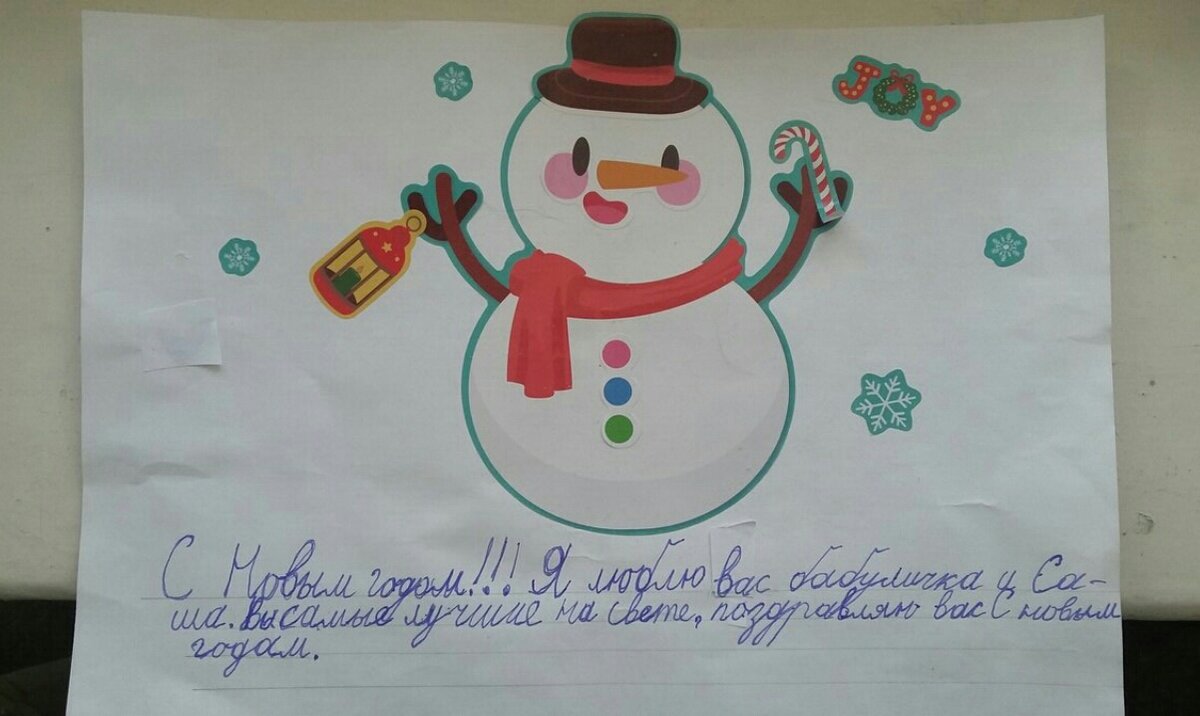 JOY
С Новым годом!!! Я люблю вас бабуличка и Са-
ша. вы самые лучшие на свете, поздравляю вас С новым
годам.